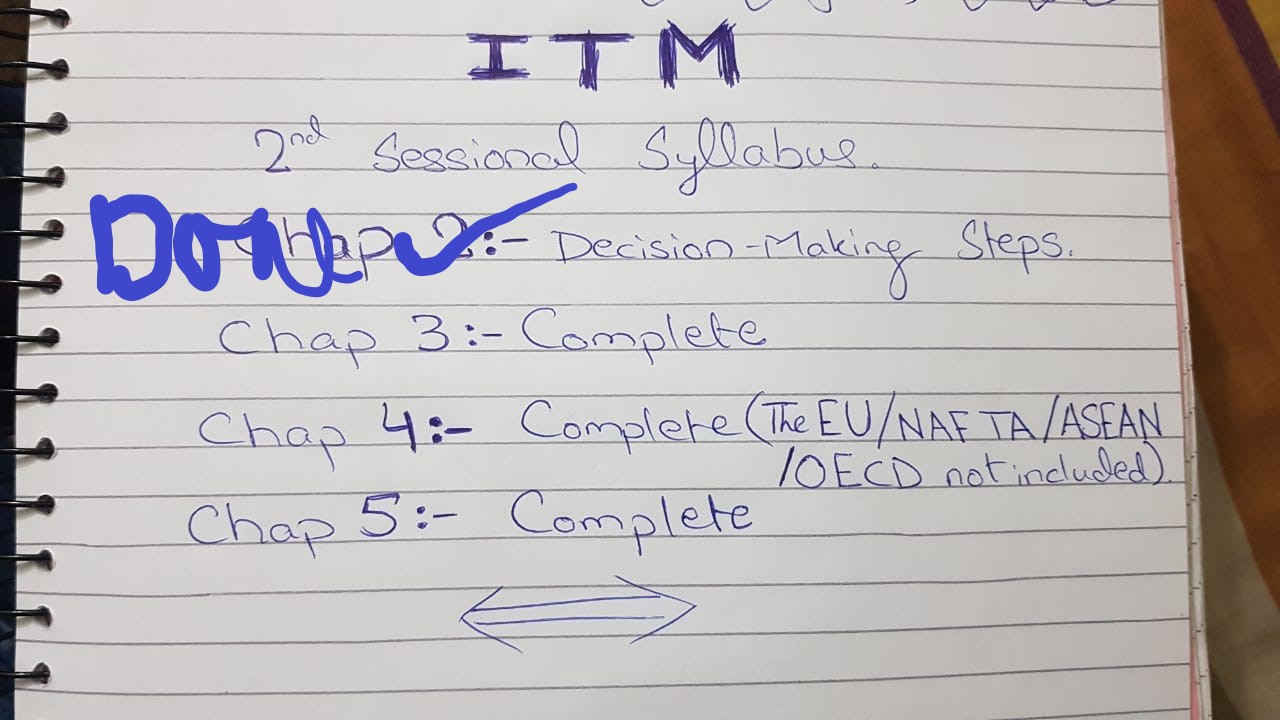 ITM
2nd Sessional Syllabus.
Done Chap 2:- Decision-Making Steps.
Chap 3:- Complete
Chap 4:- Complete (The EU/NAFTA/ASEAN
/OECD not included).
Chap 5:- Complete